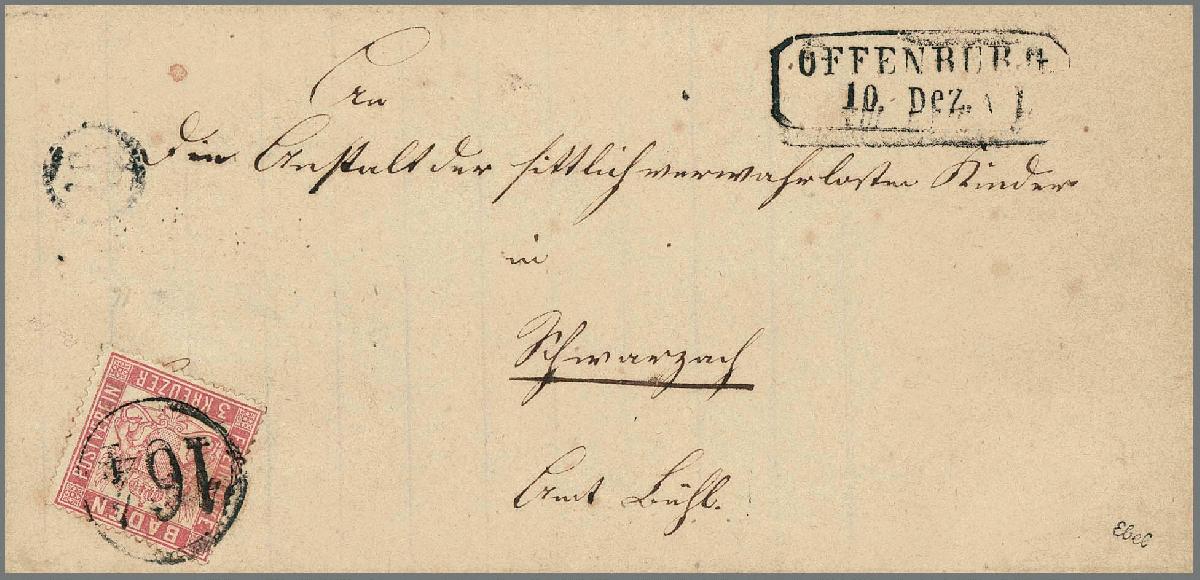 OFFENBURG
10. Dez.
An
Die Anstalt der sittlich verwahrlosten Kinder
in
Schwarzach
Amt Bühl.
BADEN
POSTVEREIN
3 KREUZER
FREIMARKE
Ebel